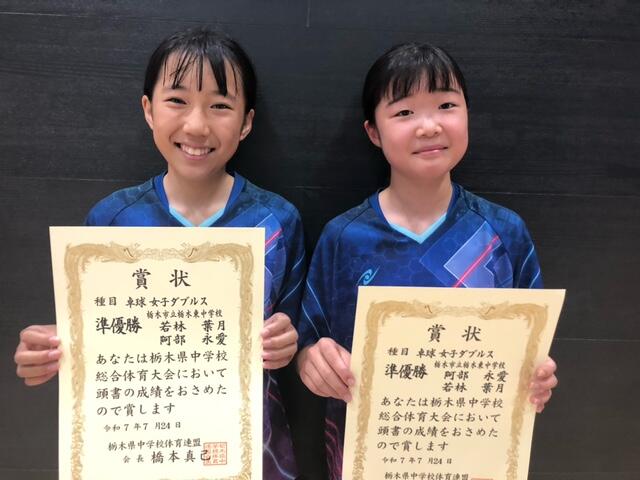 賞状
種目 卓球 女子ダブルス
栃木市立栃木東中学校
準優勝 若林 葉月
阿部 永愛
あなたは栃木県中学校
総合体育大会において
頭書の成績をおさめた
ので賞します
令和7年7月24日
栃木県中学校体育連盟
会長 橋本真己
賞状
種目 卓球 女子ダブルス
栃木市立栃木東中学校
準優勝 阿部 永愛
若林 葉月
あなたは栃木県中学校
総合体育大会において
頭書の成績をおさめた
ので賞します
令和7年7月24日
栃木県中学校体育連盟